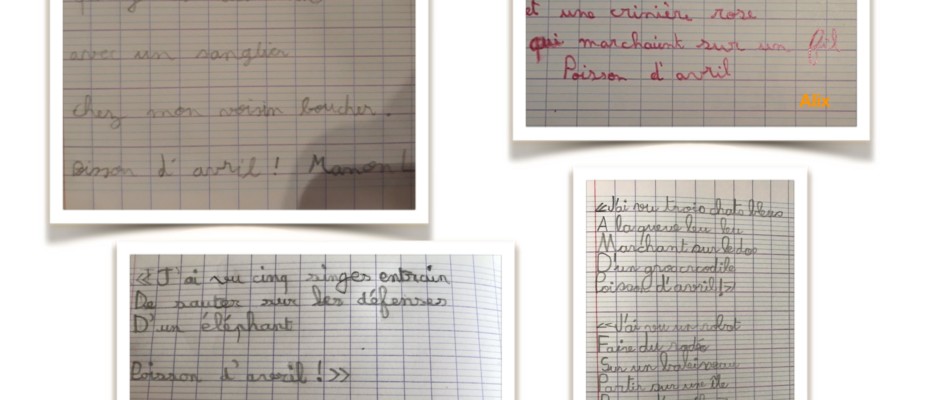 avec un sanglier
chez mon voisin boucher.
oisson d'avril ! Manon L
et une crinière rose
qui marchaint sur un fil
Poisson d'avril
Alix
«J'ai vu cinq singes entrain
De sauter sur les défenses
D'un éléphant
Poisson d'avril !»
«J'ai vu trois chats bleus
A la queue leu leu
Marchant sur le dos
D'un gros crocodile
Poisson d'avril !»
«J'ai vu un robot
Faire du rodéo
Sur un baleineau
Partir sur une île